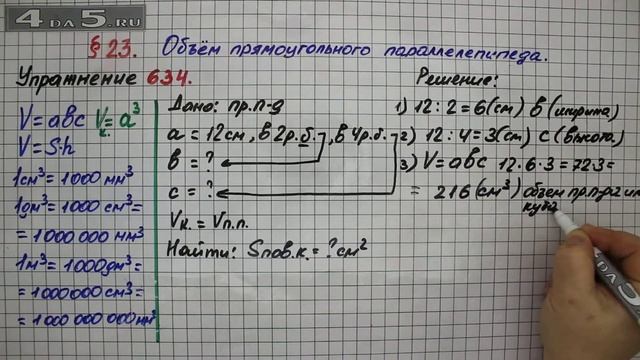 4DA5.RU
§ 23. Объём прямоугольного параллелепипеда.
Упражнение 634.
V=abc V к.=a³
V=S·h
1см³=1000 мм³
1дм³=1000 см³=
=1000 000 мм³
1м³=1000дм³=
=1000000 см³=
=1000 000 000 мм³
Дано: пр.п-д
a = 12см, в 2р.б. , в 4р.б.
b = ?
c = ?
Vк. = Vп.п.
Найти: Sпов.к.= ? см²
Решение:
1) 12 : 2 = 6(см) b (ширина)
2) 12 : 4 = 3(см) c (высота)
3) V = abc 12·6·3 = 72·3=
= 216(см³) объем пр.п-да и
куба